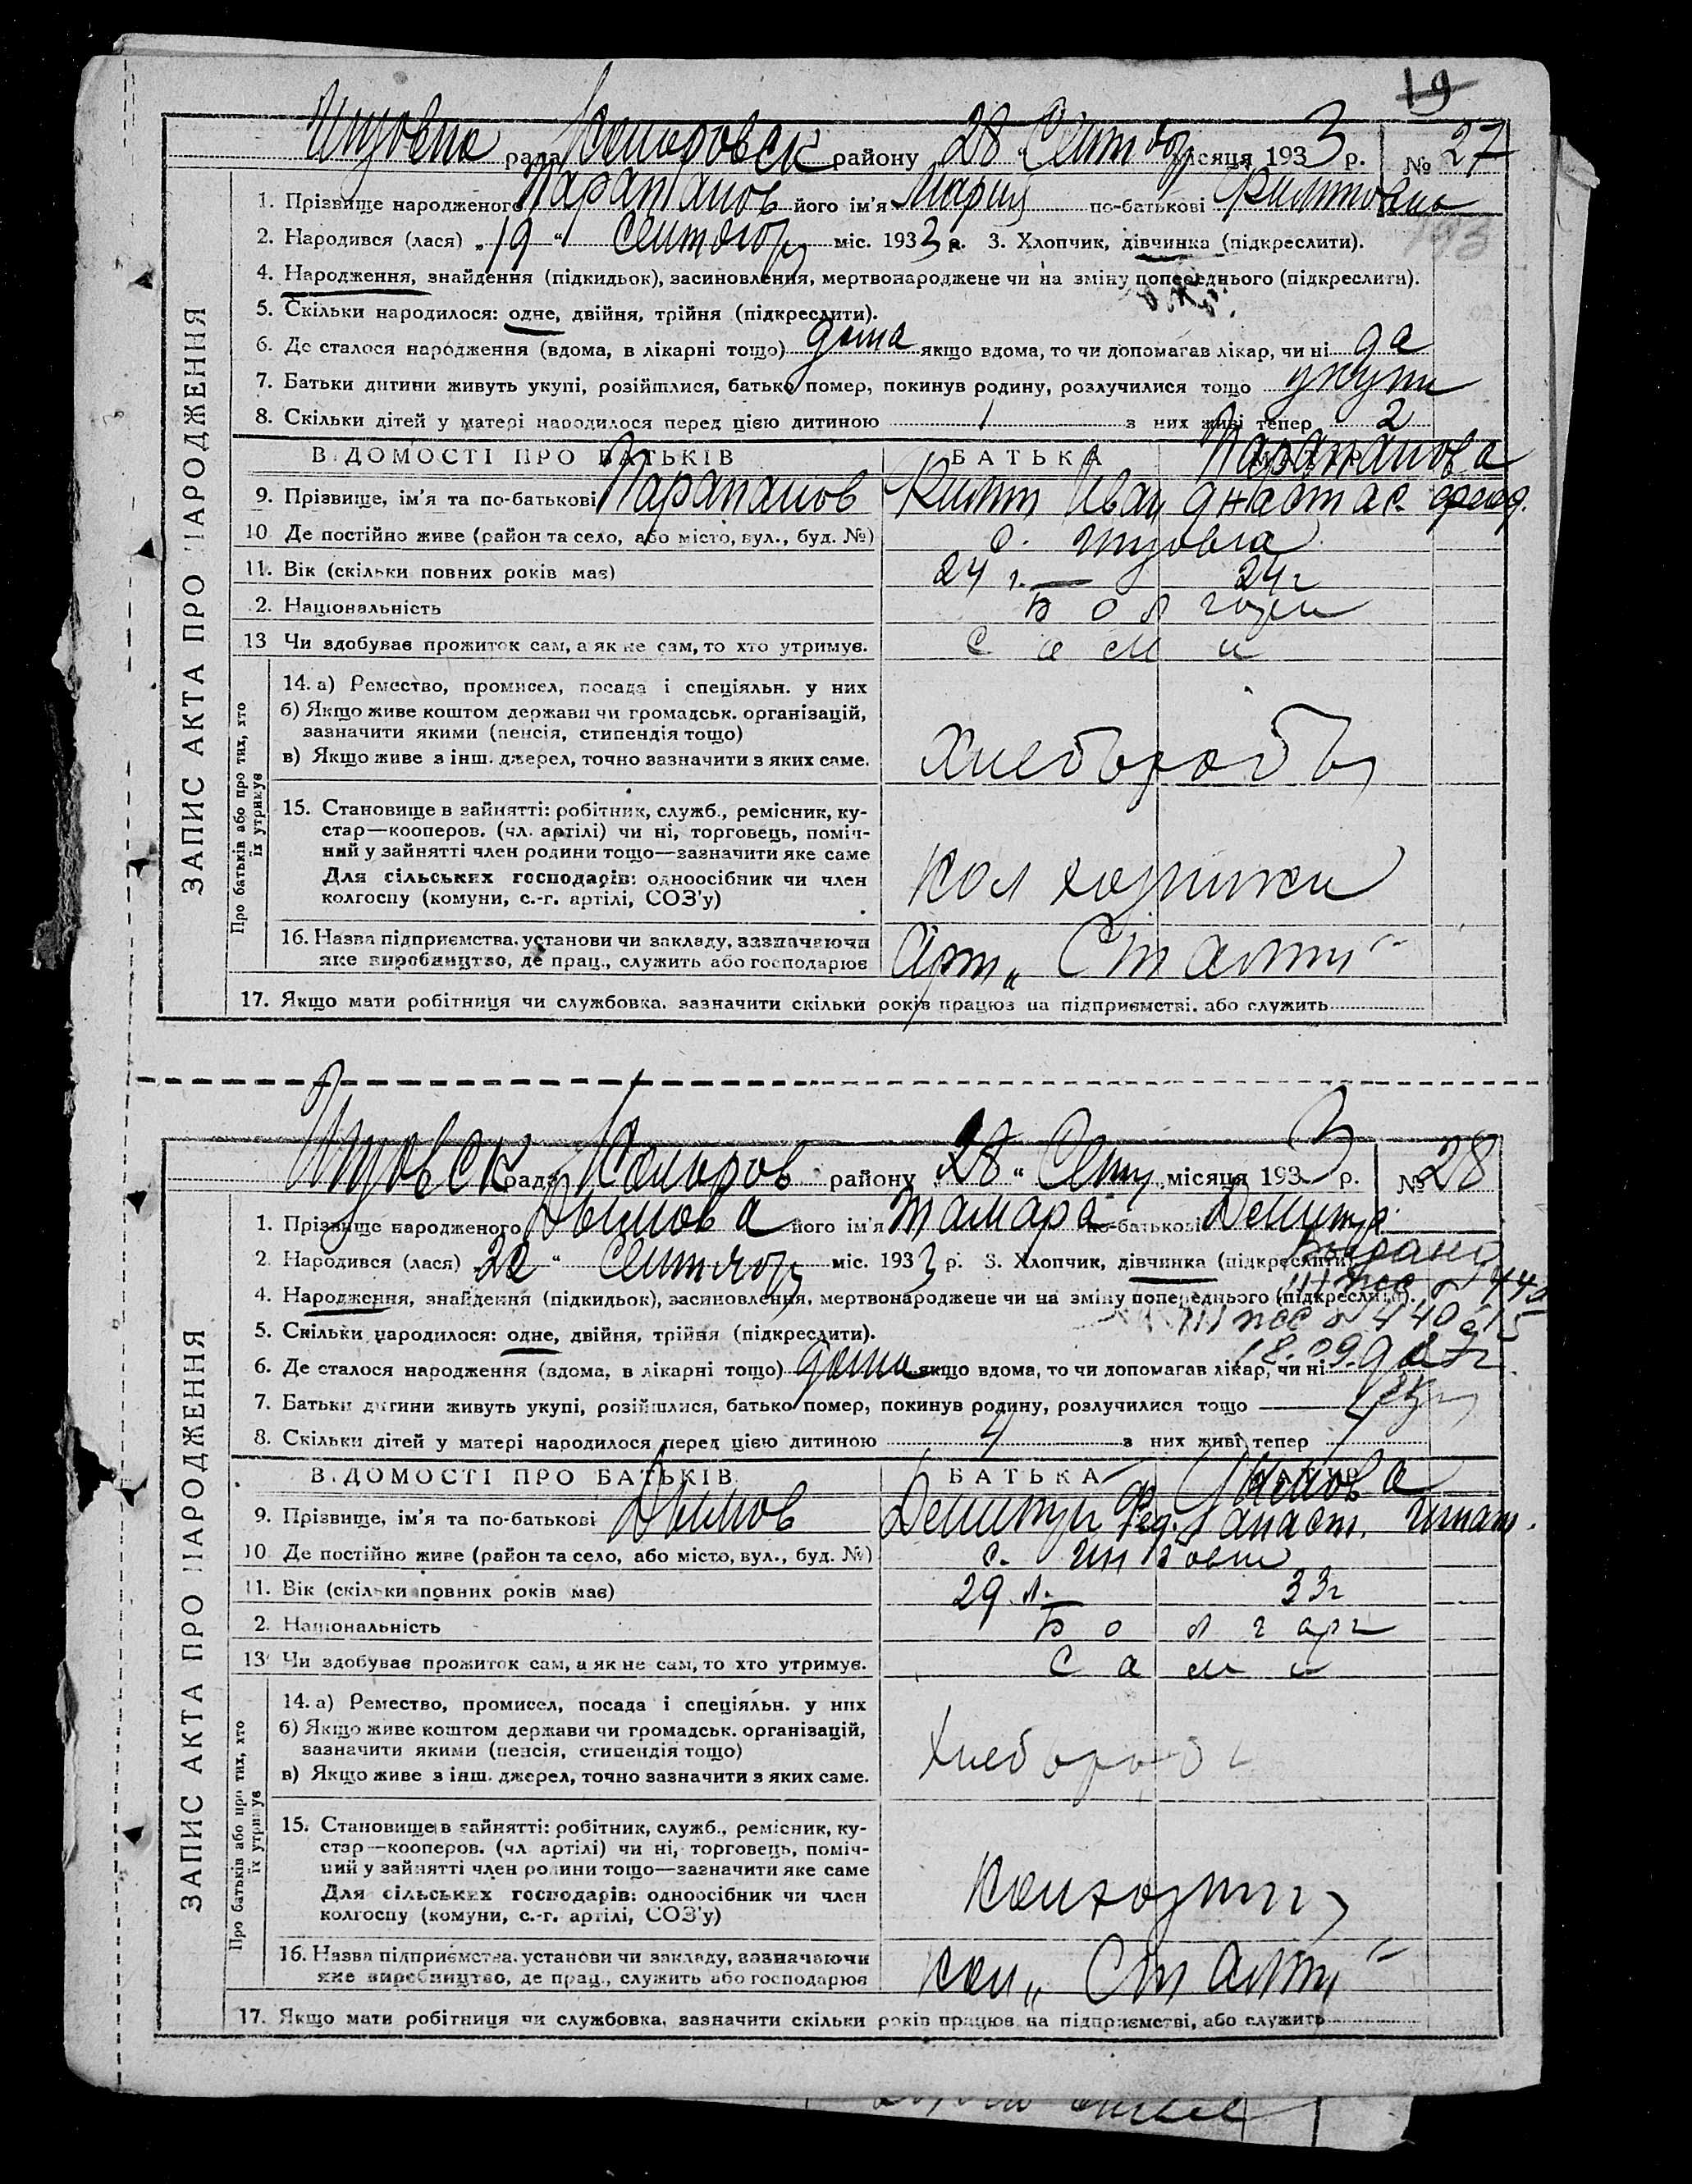 19
рада Комаровск району „28“ Сентябр місяця 1933 р. № 27
1. Прізвище народженого Парапанов його ім'я Мария по-батькові Филиповна
2. Народився (лася) „19“ Сентября міс. 1933 р. 3. Хлопчик, дівчинка (підкреслити).
4. Народження, знайдення (підкидьок), засиновлення, мертвонароджене чи на зміну попереднього (підкреслити).
5. Скільки народилося: одне, двійня, трійня (підкреслити).
6. Де сталося народження (вдома, в лікарні тощо) дома якщо вдома, то чи допомагав лікар, чи ні да
7. Батьки дитини живуть укупі, розійшлися, батько помер, покинув родину, розлучилися тощо укупи
8. Скільки дітей у матері народилося перед цією дитиною 1 з них живі тепер 2
ВІДОМОСТІ ПРО БАТЬКІВ БАТЬКА Парапанова
9. Прізвище, ім'я та по-батькові Парапанов Филип Иван Анастас.
10 Де постійно живе (район та село, або місто, вул., буд. №) с.
11. Вік (скільки повних років має) 24 г. 24 г
2. Національність Болгари
13 Чи здобуває прожиток сам, а як не сам, то хто утримує. сами
ЗАПИС АКТА ПРО НАРОДЖЕННЯ
Про батьків або про тих, хто їх утримує
14. а) Ремество, промисел, посада і спеціяльн. у них
б) Якщо живе коштом держави чи громадськ. організацій,
зазначити якими (пенсія, стипендія тощо)
в) Якщо живе з інш. джерел, точно зазначити з яких саме. Хлебороби
15. Становище в зайнятті: робітник, служб., ремісник, ку-
стар—кооперов. (чл. артілі) чи ні, торговець, поміч-
ний у зайнятті член родини тощо—зазначити яке саме
Для сільських господарів: одноосібник чи член
колгоспу (комуни, с.-г. артілі, СОЗ'у) колхозники
16. Назва підприємства, установи чи закладу, зазначаючи
яке виробництво, де прац., служить або господарює Арт „Сталин“
17. Якщо мати робітниця чи службовка, зазначити скільки років працює на підприємстві, або служить
рада Комаров району „28“ Сент місяця 1933 р. № 28
1. Прізвище народженого Дымова його ім'я Тамара по-батькові Демитр.
2. Народився (лася) „22“ Сентябр міс. 1933 р. 3. Хлопчик, дівчинка (підкреслити).
Выдано
4. Народження, знайдення (підкидьок), засиновлення, мертвонароджене чи на зміну попереднього (підкреслити).
5. Скільки народилося: одне, двійня, трійня (підкреслити).
18.09.
6. Де сталося народження (вдома, в лікарні тощо) дома якщо вдома, то чи допомагав лікар, чи ні да
7. Батьки дитини живуть укупі, розійшлися, батько помер, покинув родину, розлучилися тощо
8. Скільки дітей у матері народилося перед цією дитиною 4 з них живі тепер
ВІДОМОСТІ ПРО БАТЬКІВ БАТЬКА Дымова
9. Прізвище, ім'я та по-батькові Дымов Демитри Фед. Анаст. Игнат.
10 Де постійно живе (район та село, або місто, вул., буд. №) с.
11. Вік (скільки повних років має) 29 л. 33 г
2. Національність Болгари
13 Чи здобуває прожиток сам, а як не сам, то хто утримує. сами
ЗАПИС АКТА ПРО НАРОДЖЕННЯ
Про батьків або про тих, хто їх утримує
14. а) Ремество, промисел, посада і спеціяльн. у них
б) Якщо живе коштом держави чи громадськ. організацій,
зазначити якими (пенсія, стипендія тощо)
в) Якщо живе з інш. джерел, точно зазначити з яких саме. Хлебороби
15. Становище в зайнятті: робітник, служб., ремісник, ку-
стар—кооперов. (чл. артілі) чи ні, торговець, поміч-
ний у зайнятті член родини тощо—зазначити яке саме
Для сільських господарів: одноосібник чи член
колгоспу (комуни, с.-г. артілі, СОЗ'у) колхозники
16. Назва підприємства, установи чи закладу, зазначаючи
яке виробництво, де прац., служить або господарює кол „Сталин“
17. Якщо мати робітниця чи службовка, зазначити скільки років працює на підприємстві, або служить